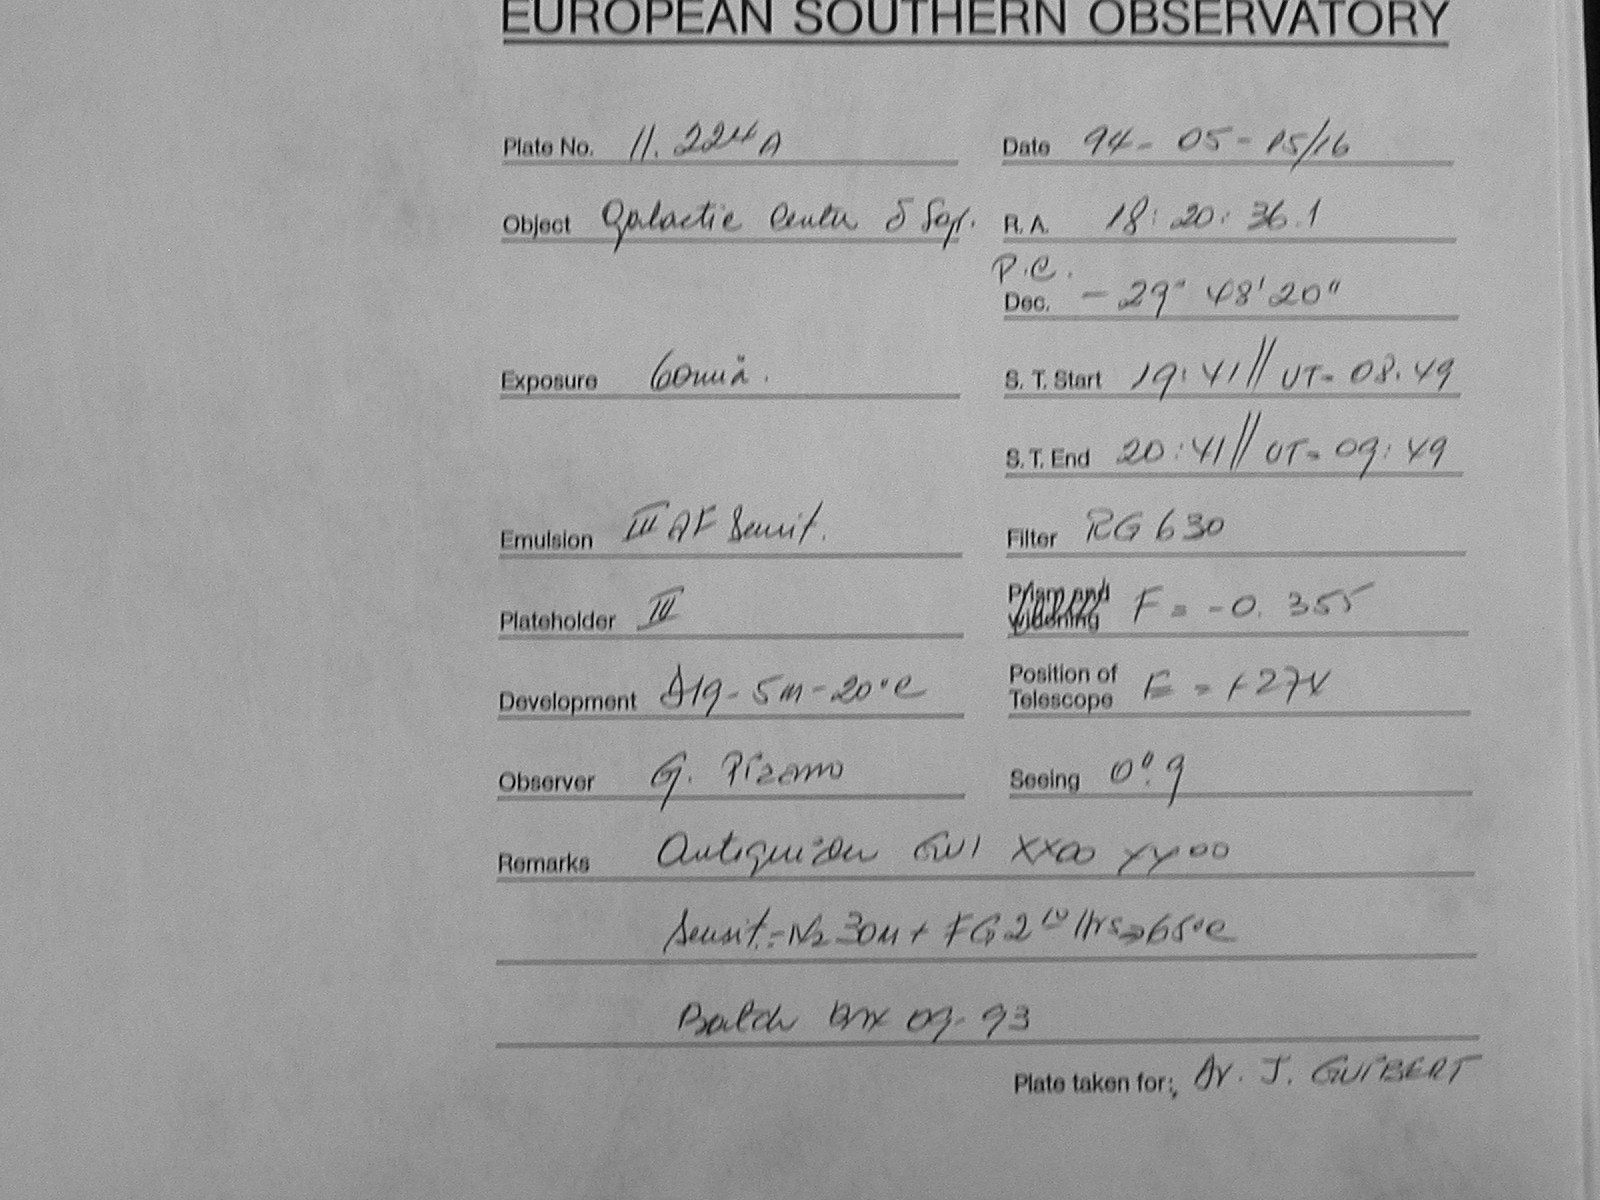 EUROPEAN SOUTHERN OBSERVATORY
Plate No. 11.224A Date 94-05-15/16
Object Galactic Center δ Sgr. R. A. 18:20:36.1
P.C.
Dec. -29° 48' 20"
Exposure 60min. S. T. Start 19:41// UT= 08.49
S. T. End 20:41// UT= 09:49
Emulsion III AF Sensit. Filter RG 630
Plateholder III Prism and widening F = -0.355
Development D19-5m-20°C Position of Telescope E = +274
Observer G. Pizarro Seeing 0".9
Remarks XX00 YY00
Sensit.=N2 30m + FG 2 Hrs 65°C
Batch 09-93
Plate taken for: Dr. J. GUIBERT